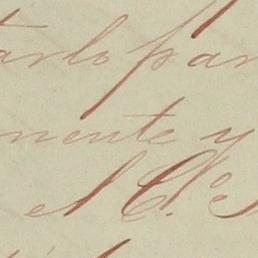 arlo par
mente y
el C.º